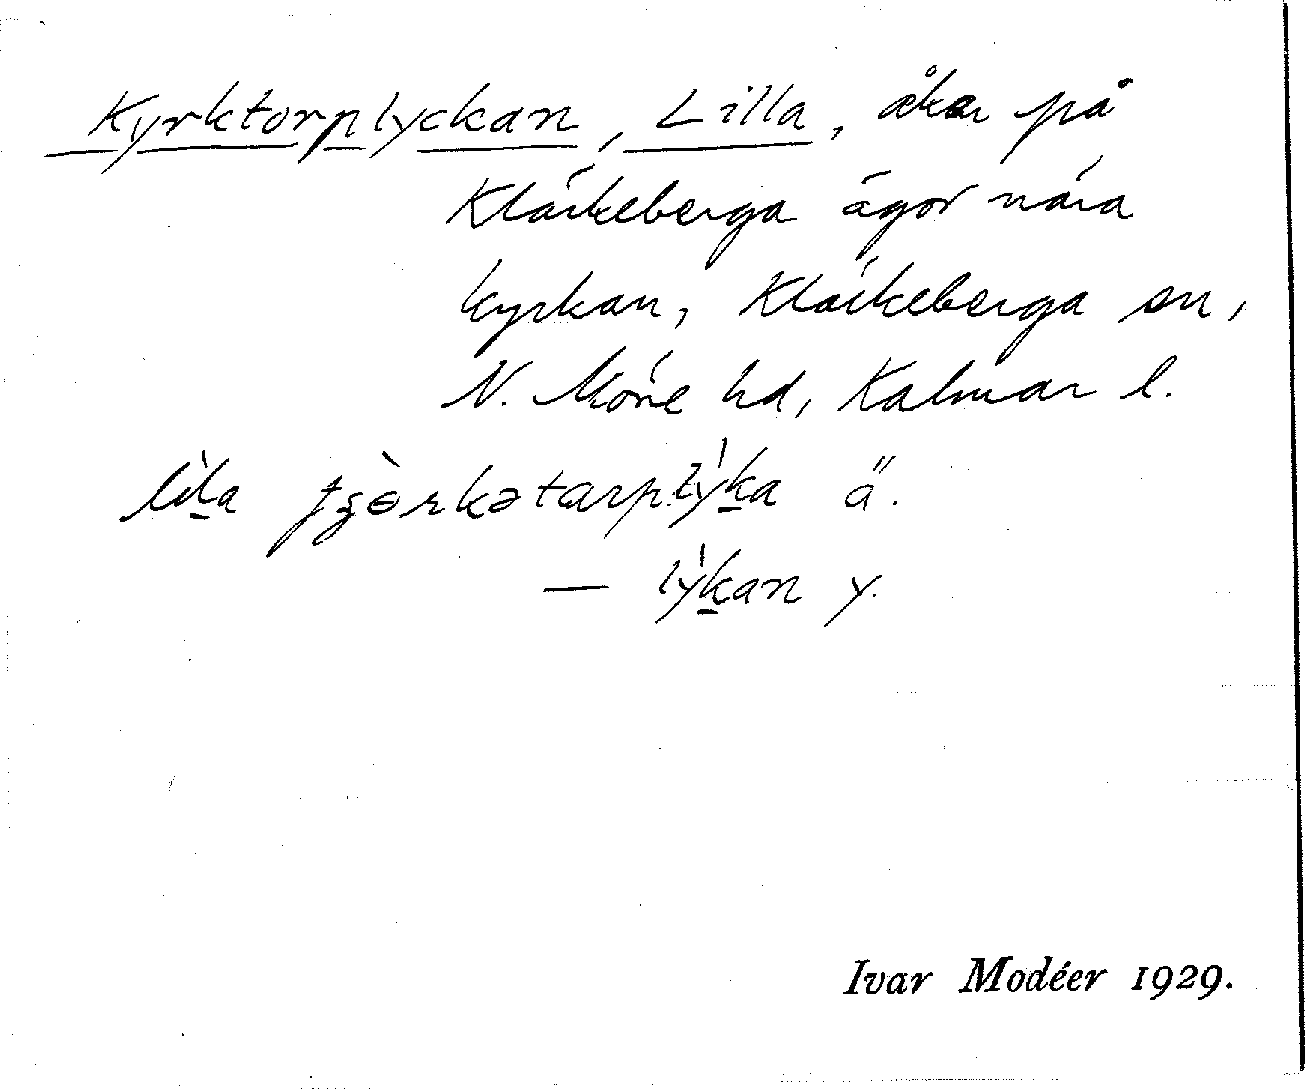 Kyrktorplyckan, Lilla, åker på
Kläckeberga ägor nära
kyrkan, Kläckeberga sn,
N. Möre hd, Kalmar l.
lìla tʒɵ̀rkətarplỳka ä.
— lỳkan y.
Ivar Modéer 1929.